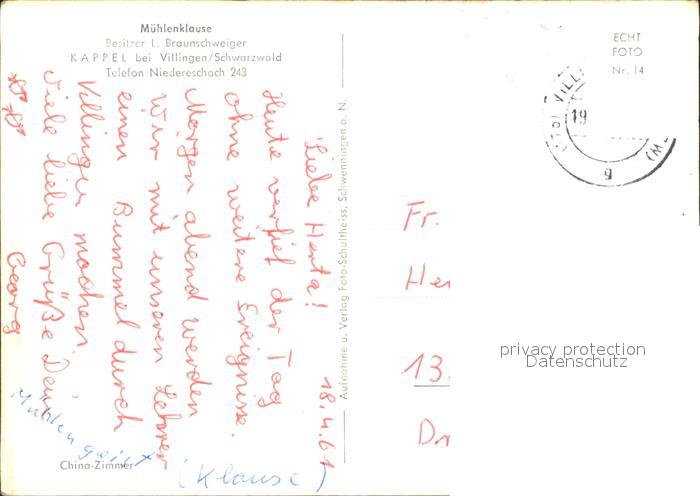 Mühlenklause
Besitzer L. Braunschweiger
KAPPEL bei Villingen/Schwarzwald
Telefon Niedereschach 243
18.4.61
Liebe Herta!
Heute verlief der Tag
ohne weitere Ereignisse.
Morgen abend werden
wir mit unseren Lehrer
einen Bummel durch
Villingen machen.
Viele liebe Grüße Dein
Georg
Mühlengeist
(Klause)
China-Zimmer
Aufnahme u. Verlag Foto-Schultheiss, Schwenningen a. N.
ECHT
FOTO
Nr. 14
VILL
19
g
Fr.
Her
13
Dr
privacy protection
Datenschutz